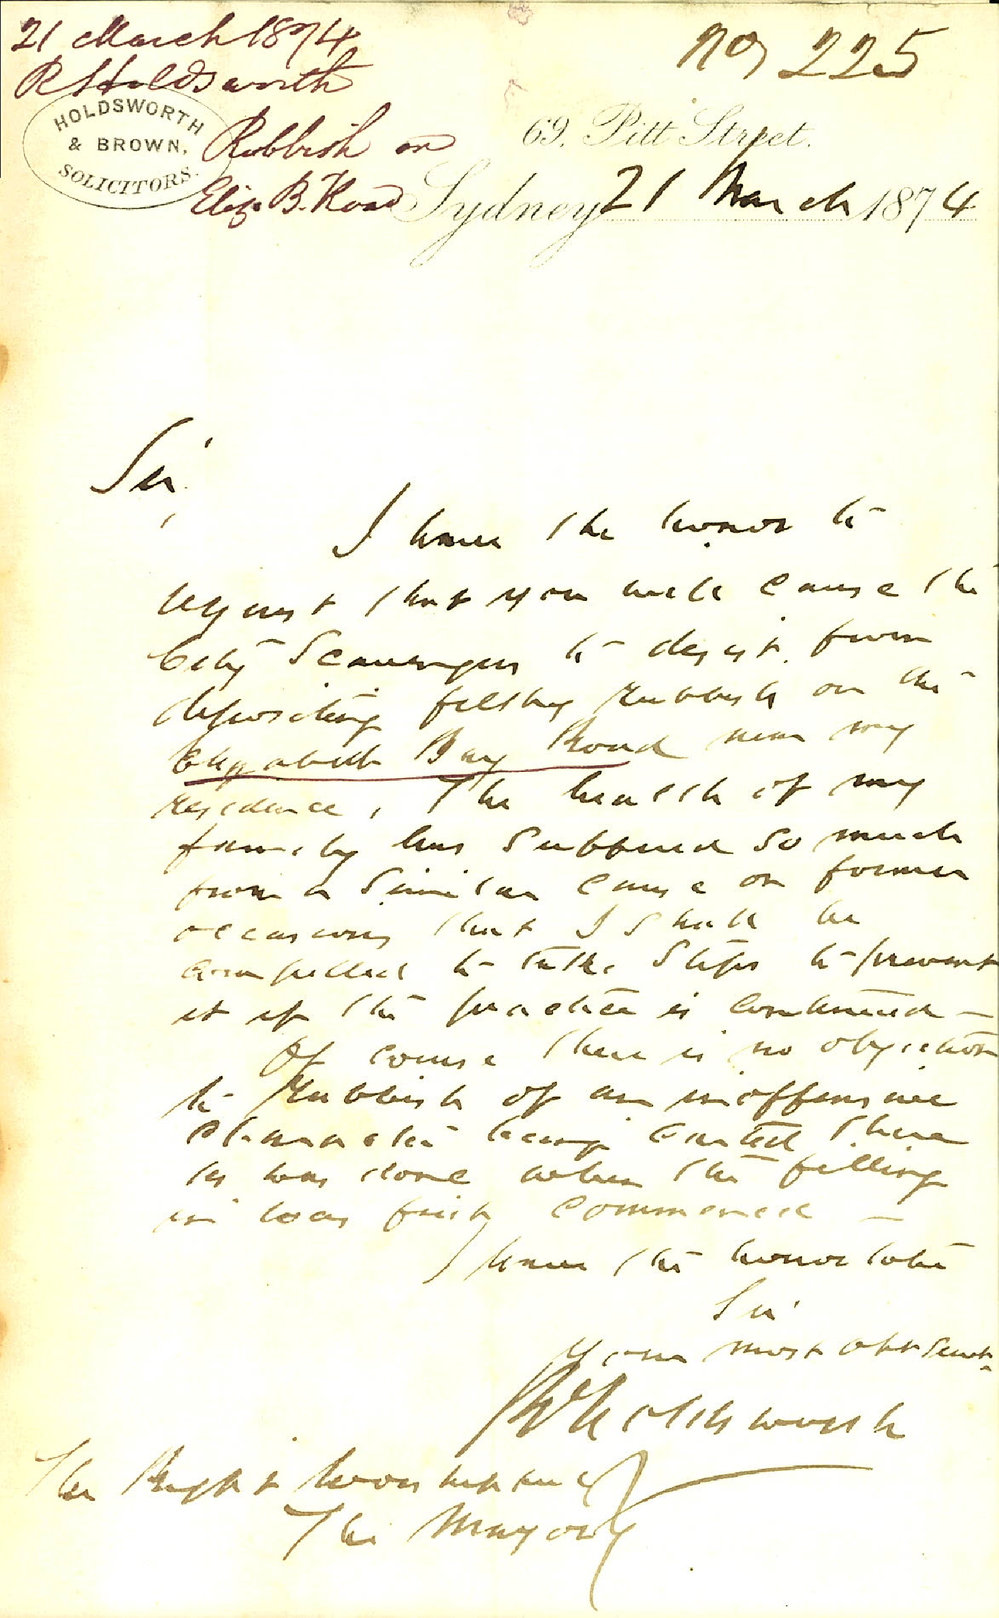 21 March 1874
R Holdsworth
Rubbish on
Eliz. B. Road
No 225
HOLDSWORTH
& BROWN,
SOLICITORS.
69, Pitt Street.
Sydney 21 March 1874
Sir,
I have the honor to
request that you will cause the
City Scavengers to desist from
depositing filthy rubbish on the
Elizabeth Bay Road near my
residence, The health of my
family has suffered so much
from a similar cause on former
occasions that I shall be
compelled to take steps to prevent
it if the practice is continued —
Of course there is no objection
to rubbish of an inoffensive
character being carted there
as was done when the filling
in was first commenced —
I have the honor to be
Sir
Your most obt Servt
Holdsworth
The Right Worshipful
The Mayor